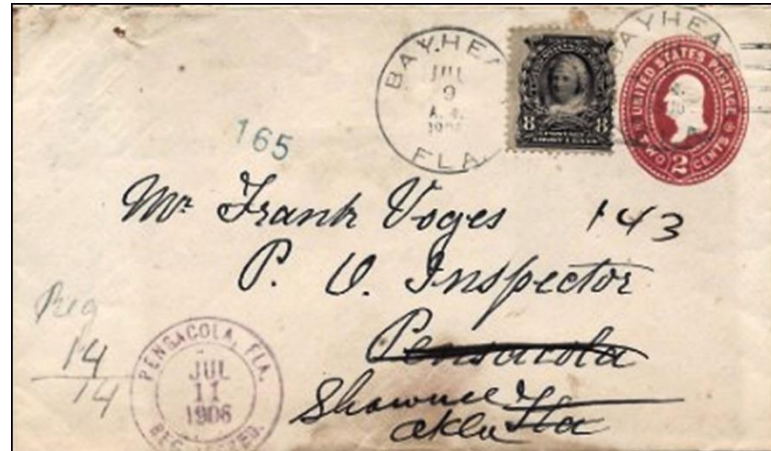 BAYHEA
JUL
9
A.M.
1906
FLA.
8 8
BAYHEA
UNITED STATES POSTAGE
TWO 2 CENTS
165
Mr Frank Voges 143
P. O. Inspector
Pensacola
Fla
Shawnee
Okla
Reg
14
14
PENSACOLA, FLA.
JUL
11
1906
REGISTERED.